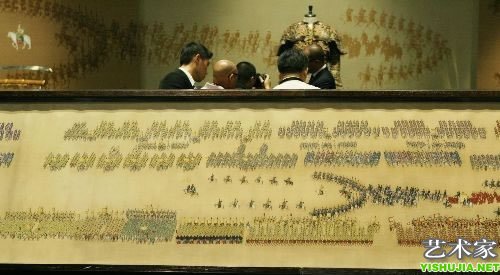 艺术家
YISHUJIA.NET